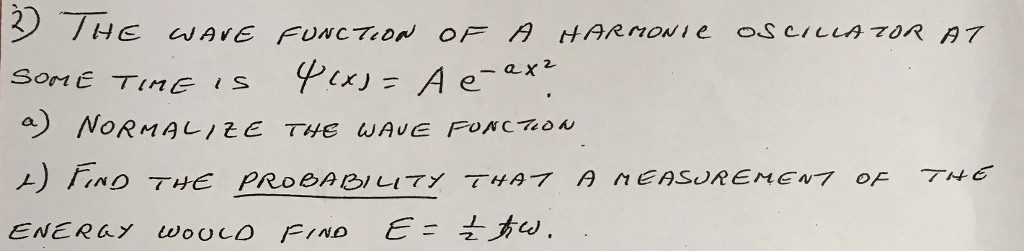 2) THE WAVE FUNCTION OF A HARMONIC OSCILLATOR AT
SOME TIME IS ψ(x) = A e^{-ax²}.
a) NORMALIZE THE WAVE FUNCTION
b) FIND THE PROBABILITY THAT A MEASUREMENT OF THE
ENERGY WOULD FIND E = ½ ħω.